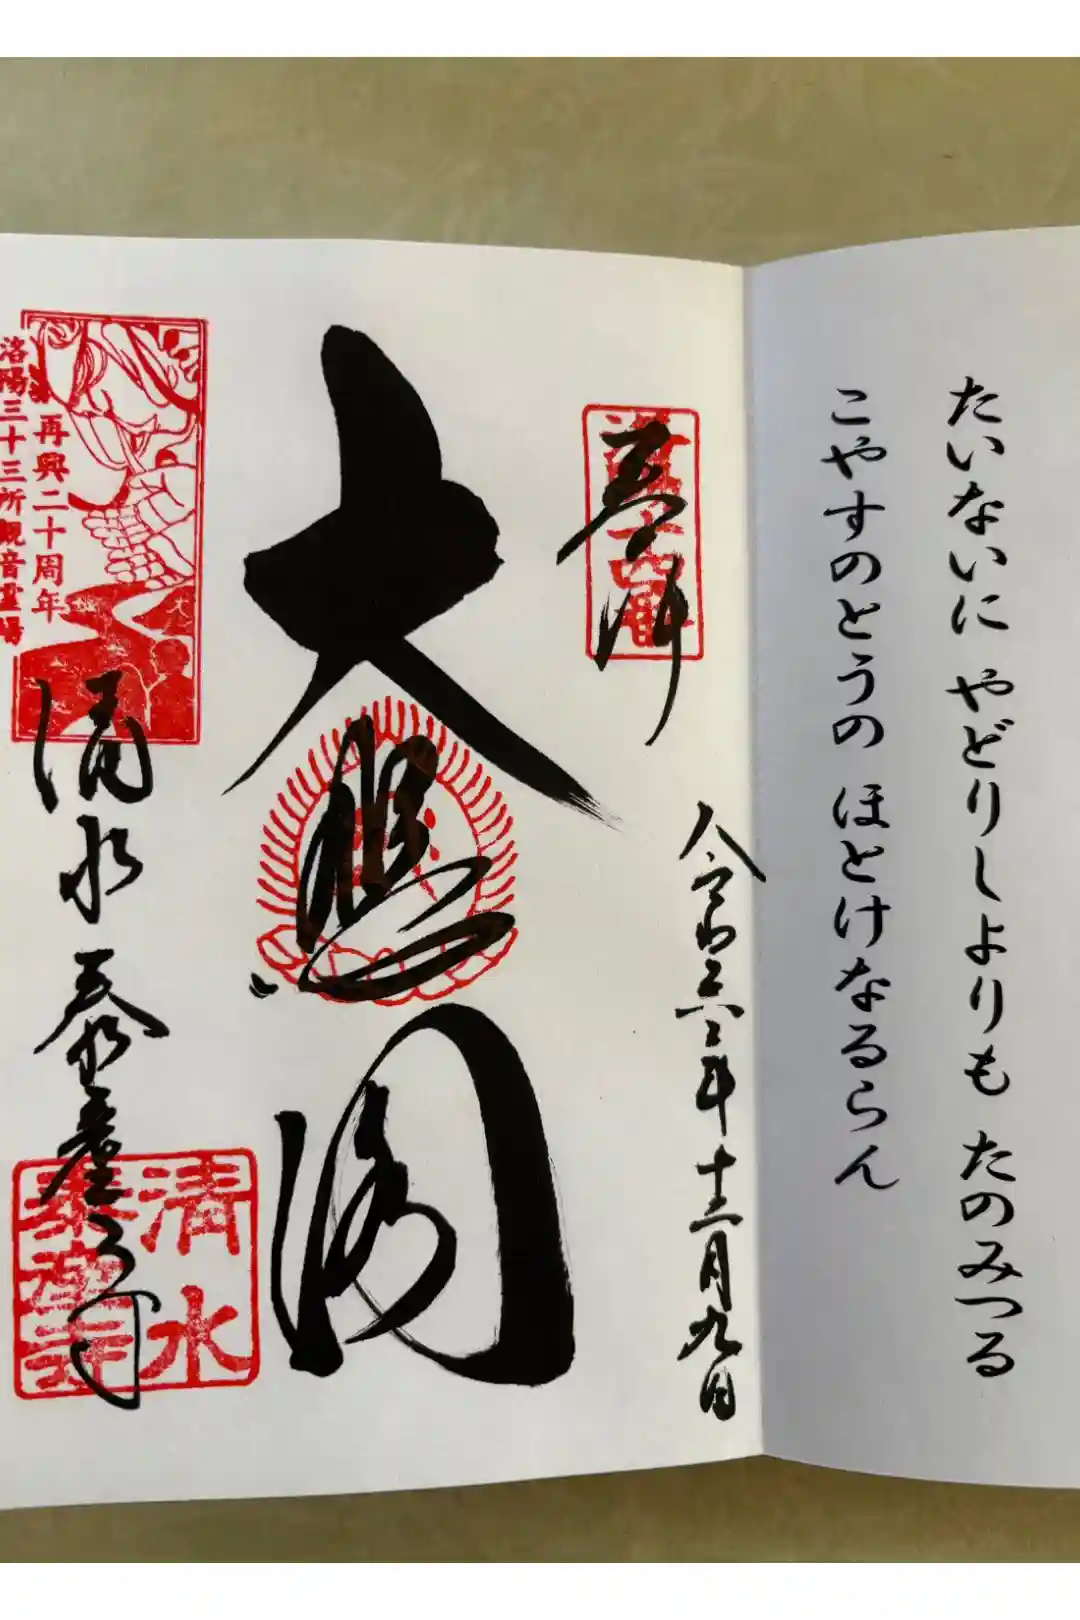 たいないに やどりしよりも たのみつる
こやすのとうの ほとけなるらん
奉拝
洛陽十四番
令和六年十二月九日
大悲閣
洛陽三十三所観音霊場
再興二十周年
清水泰産寺
清水
泰産寺